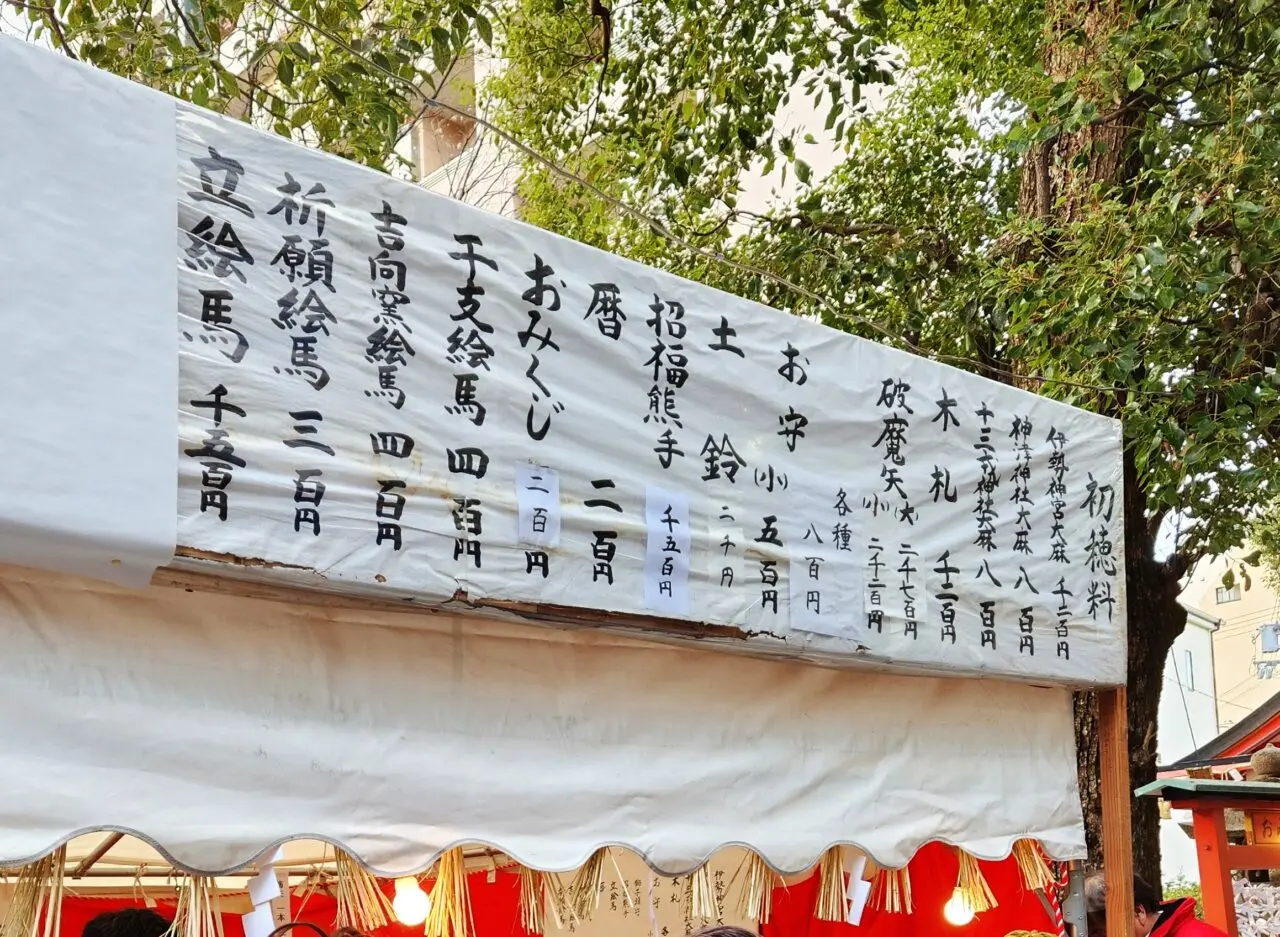 初穂料
伊勢神宮大麻 千二百円
神津神社大麻 八百円
十三戎神社大麻 八百円
木札 千二百円
破魔矢 大 二千七百円
小 二千二百円
お守 各種 八百円
小 五百円
土鈴 二千円
招福熊手 千五百円
暦 二百円
おみくじ 二百円
干支絵馬 四百円
吉向窯絵馬 四百円
祈願絵馬 三百円
立絵馬 千五百円